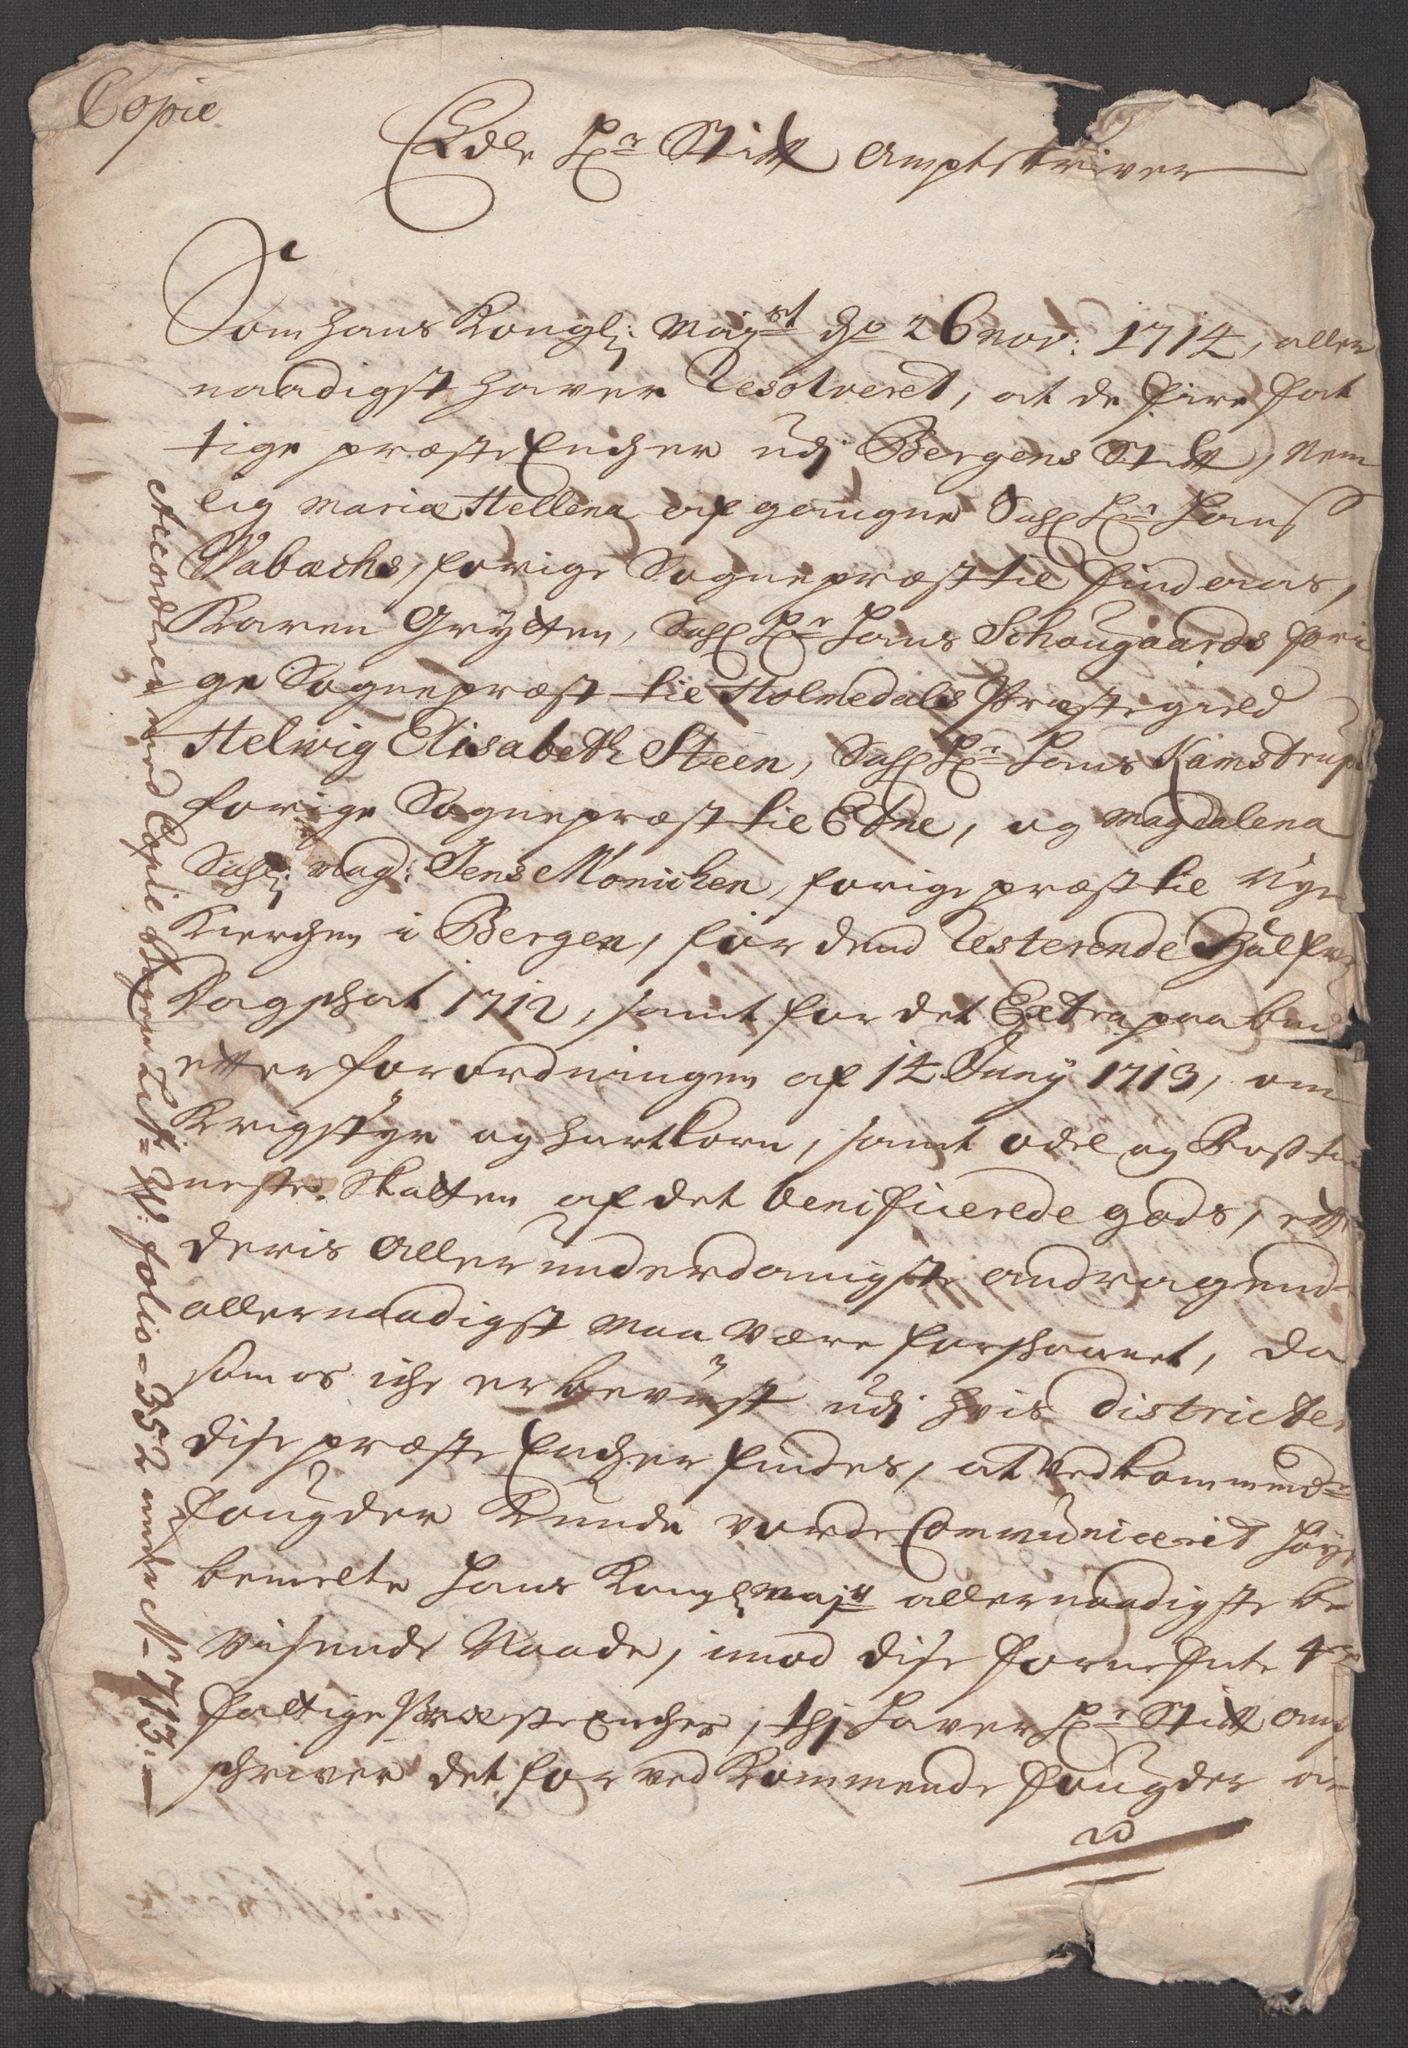 Copie
Edle Hr Stift Amptskriver
Som hans Kongl: Mayst dno 26 Nov: 1714, aller
naadigst haver Resolveret, at de fire fat
tige præste Encher udj Bergens Stift, nem
lig Maria Hellena afgangne Sahl Hr Hans
Wabachs, forige Sognepræst til Findaas,
Karen Grytten, Sahl Hr Hans Schougaards fori
ge Sognepræst til Holmedals Præstegield
Helwig Elisabeth Steen, Sahl Hr Hans Kamstrups
forige Sognepræst til Edne, og Magdalena
Sahl: Mag: Jens Mønichen, forige præst til Nye
Kierchen i Bergen, for dend Resterende Hælfte
Dagschat 1712, samt for det Extra paabud
etter forordningen af 14 Juny 1713, om
Krigstyr og hartkorn, samt odel og Rostie
neste Skatten af det benificerede gods, efter
deris allerunderdanigste andragende
allernaadigst maa være forschaanet, da
som os iche er bevust udj hvis districter
dise præste Encher findes, at vedkommende
fougder kunde vorde Communicerit høy
bemelte Hans Kongl Mayst allernaadigste be
visende Naade, imod dise fornefnte 4re
fattige Præste Encher, thj haver Hr Stift Ampt
schriver det for vedkommende fougder an
ad
Accorderer med Copie Bogen Litr: W: folio = 352 under N- 713:-